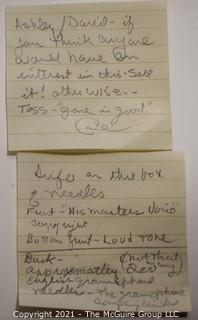 Ashley / David - if
you think anyone
would have an
interest in this - sell
it! otherwise --
Toss - "gone is good"
Info on this box
of needles
Frnt - "His Masters Voice"
copyright
Bottom frnt - Loud Tone
Back - (not that
approximatley 200
English gramophone
needles - The gramophone
Company
Copyright 2021 - The McGuire Group LLC